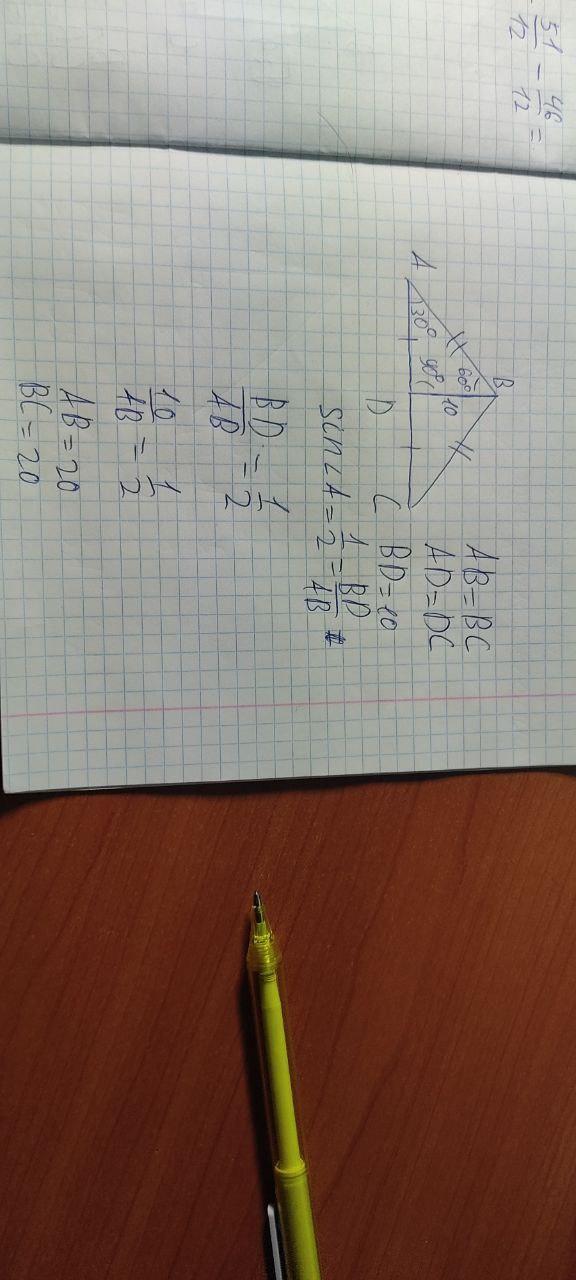 51/12 - 46/12 =
B
60°
10
30°
90°
A
D
C
AB=BC
AD=DC
BD=10
sin∠A = 1/2 = BD/AB
BD/AB = 1/2
10/AB = 1/2
AB=20
BC=20